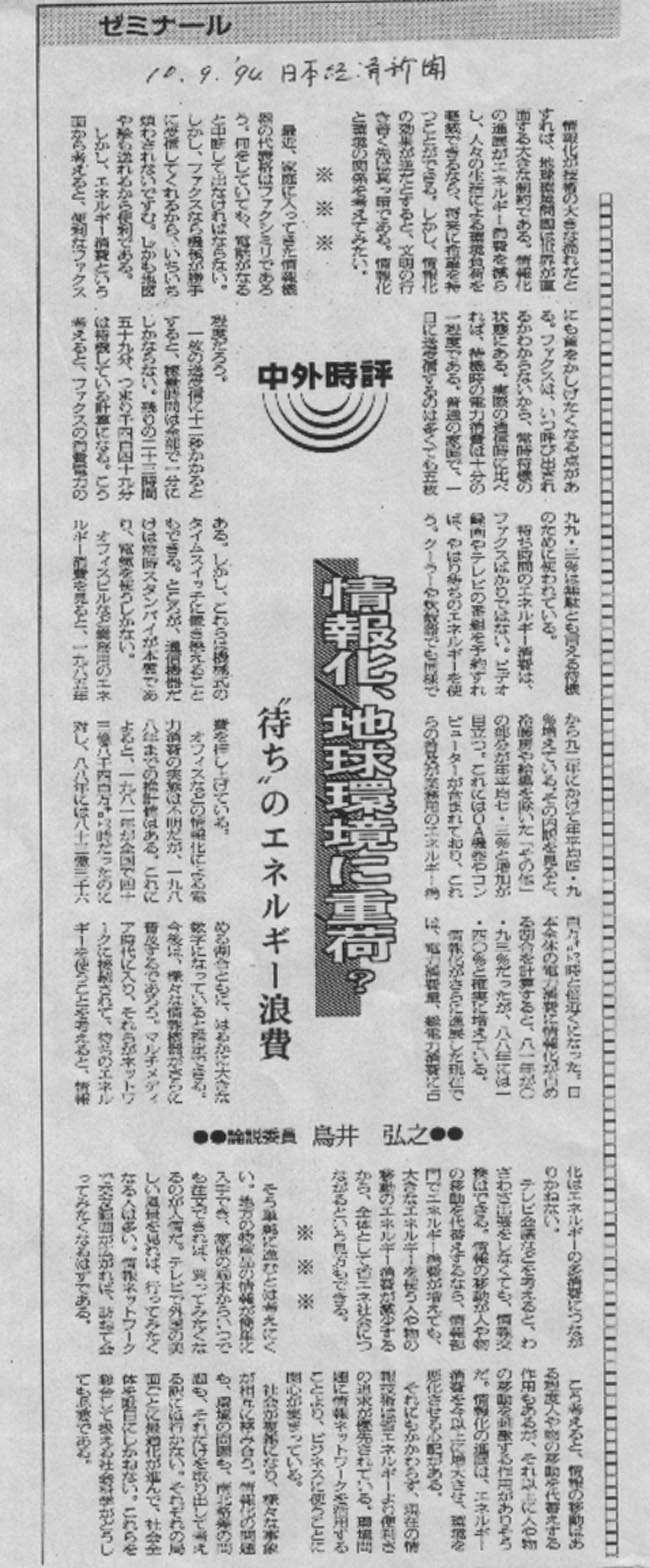 ゼミナール
10.9.'94 日本経済新聞
中外時評
情報化、地球環境に重荷?
"待ち"のエネルギー浪費
●●論説委員 鳥井 弘之●●
情報化が技術の大きな流れだと
すれば、地球環境問題は世界が直
面する大きな制約である。情報化
の進展がエネルギー消費を減ら
し、人々の生活による環境負荷を
軽減できるなら、将来に希望を持
つことができる。しかし、情報化
の効果が逆だとすると、文明の行
き着く先は真っ暗である。情報化
と環境の関係を考えてみたい。
※ ※ ※
最近、家庭に入ってきた情報機
器の代表格はファクシミリであろ
う。何をしていても、電話がなる
と中断して出なければならない。
しかし、ファクスなら機械が勝手
に受信してくれるから、いちいち
煩わされないですむ。しかも地図
や絵も送れるから便利である。
しかし、エネルギー消費という
面から考えると、便利なファクス
にも首をかしげたくなる点があ
る。ファクスは、いつ呼び出され
るかわからないから、常時待機の
状態にある。実際の通信時に比べ
れば、待機時の電力消費は十分の
一程度である。普通の家庭で、一
日に送受信するのは多くても五枚
程度だろう。
一枚の送受信に十二秒かかると
すると、稼働時間は全部で一分に
しかならない。残りの二十三時間
五十九分、つまり千四百四十九分
は待機している計算になる。こう
考えると、ファクスの消費電力の
九九・三%は無駄とも言える待機
のために使われている。
待ち時間のエネルギー消費は、
ファクスばかりではない。ビデオ
録画やテレビの番組を予約すれ
ば、やはり待ちのエネルギーを使
う。クーラーや炊飯器でも同様で
ある。しかし、これらは機械式の
タイムスイッチに置き換えること
もできる。ところが、通信機器だ
けは常時スタンバイが本質であ
り、電気を使うしかない。
オフィスビルなど業務用のエネ
ルギー消費を見ると、一九八五年
から九二年にかけて年平均四・九
%増えている。その内訳を見ると、
冷暖房や給湯を除いた「その他」
の部分が年平均七・三%と増加が
目立つ。これにはOA機器やコン
ピューターが含まれており、これ
らの普及が業務用のエネルギー消
費を押し上げている。
オフィスなどの情報化による電
力消費の実態は不明だが、一九八
八年までの推計値はある。これに
よると、一九八一年が全国で四十
三億八千四百万㌔㍗時だったのに
対し、八八年には八十二億三千六
百万㌔㍗時と倍近くになった。日
本全体の電力消費に情報化が占め
る割合を計算すると、八一年が〇
・九三%だったが、八八年には一
・四〇%と確実に増えている。
情報化がさらに進展した現在で
は、電力消費量、総電力消費に占
める割合ともに、はるかに大きな
数字になっていると推定できる。
今後は、様々な情報機器がさらに
普及するであろう。マルチメディ
ア時代に入り、それらがネットワ
ークに接続されて、待ちのエネル
ギーを使うことを考えると、情報
化はエネルギーの多消費につなが
りかねない。
テレビ会議などを考えると、わ
ざわざ出張をしなくても、情報交
換はできる。情報の移動が人や物
の移動を代替えするなら、情報部
門でエネルギー消費が増えても、
大きなエネルギーを使う人や物の
移動のエネルギー消費が減少する
から、全体として省エネ社会につ
ながるという見方もできる。
※ ※ ※
そう単純に進むとは考えにく
い。地方の物産品の情報が簡単に
入手でき、家庭の端末からいつで
も注文できれば、買ってみたくな
るのが人情だ。テレビで外国の美
しい風景を見れば、行ってみたく
なる人は多い。情報ネットワーク
で交友範囲が広がれば、訪ねて会
ってみたくなるはずである。
こう考えると、情報の移動はあ
る程度人や物の移動を代替えする
作用もあるが、それ以上に人や物
の移動を刺激する作用がありそう
だ。情報化の進展は、エネルギー
消費を今以上に増大させ、環境を
悪化させる心配がある。
それにもかかわらず、現在の情
報技術は省エネルギーより便利さ
の追求が優先されている。環境問
題に情報ネットワークを活用する
ことより、ビジネスに使うことに
関心が集まっている。
社会が複雑になり、様々な事象
が相互に絡み合う。情報化の問題
も、環境の問題も、南北格差の問
題も、それだけを取り出して考え
る訳には行かない。それぞれの局
面ごとに最適化が進んで、社会全
体を駄目にしかねない。これらを
総合して扱える社会科学がどうし
ても必要である。